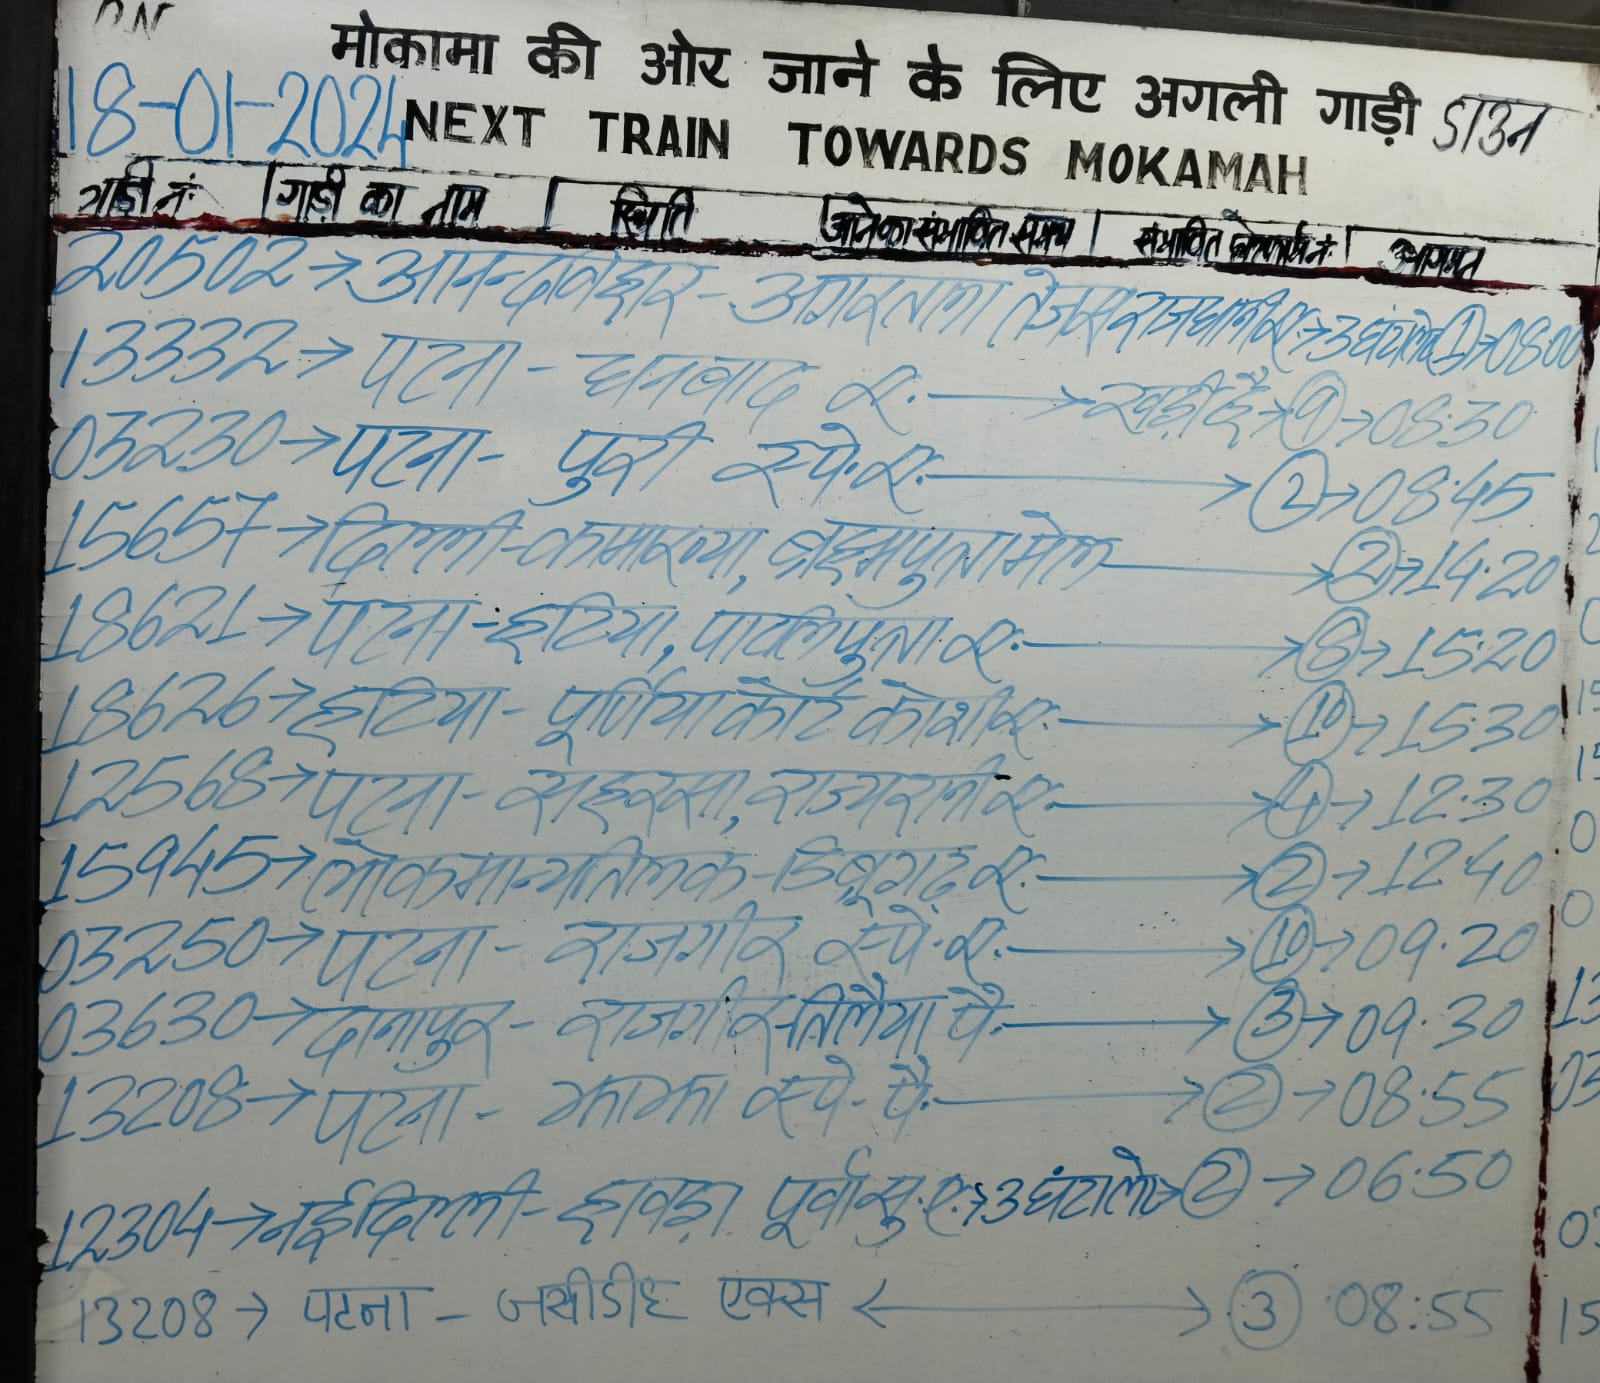 DN
मोकामा की ओर जाने के लिए अगली गाड़ी डाउन
18-01-2024 NEXT TRAIN TOWARDS MOKAMAH
गाड़ी नं. गाड़ी का नाम स्थिति आने का संभावित समय संभावित प्लेटफार्म नं. आगमन
20502→आनन्दविहार-अगरतला तेजस राजधानी ए.→3 घंटा लेट ①→08:00
13332→पटना-धनबाद ए.→खड़ी है→⑨→08:30
03230→पटना-पुरी स्पे.ए.→②→08:45
15657→दिल्ली-कामाख्या, ब्रह्मपुत्रा मेल→②→14:20
18621→पटना-हटिया, पाटलिपुत्रा ए.→⑧→15:20
18626→हटिया-पूर्णिया कोर्ट कोशी ए.→⑩→15:30
12568→पटना-सहरसा, राज्यरानी ए.→④→12:30
15945→लोकमान्यतिलक-डिब्रूगढ़ ए.→②→12:40
03250→पटना-राजगीर स्पे.ए.→⑩→09.20
03630→दानापुर-राजगीर-तिलैया पै.→③→09.30
13208→पटना-झाझा स्पे.पै.→②→08:55
12304→नई दिल्ली-हावड़ा पूर्वा सु.ए.→3 घंटा ले→②→06:50
13208→पटना-जसीडीह एक्स ←→③ 08:55